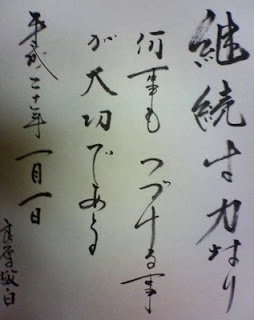 継続は力なり
何事もつづける事
が大切である
平成二十一年一月一日